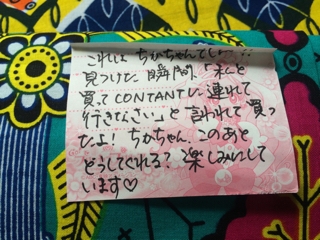 これは ちかちゃんでしょ
見つけた 瞬間、「私を
買って CONTANTに 連れて
行きなさい」と 言われて 買っ
たよ! ちかちゃん、このあと
どうしてくれる? 楽しみにして
います♡